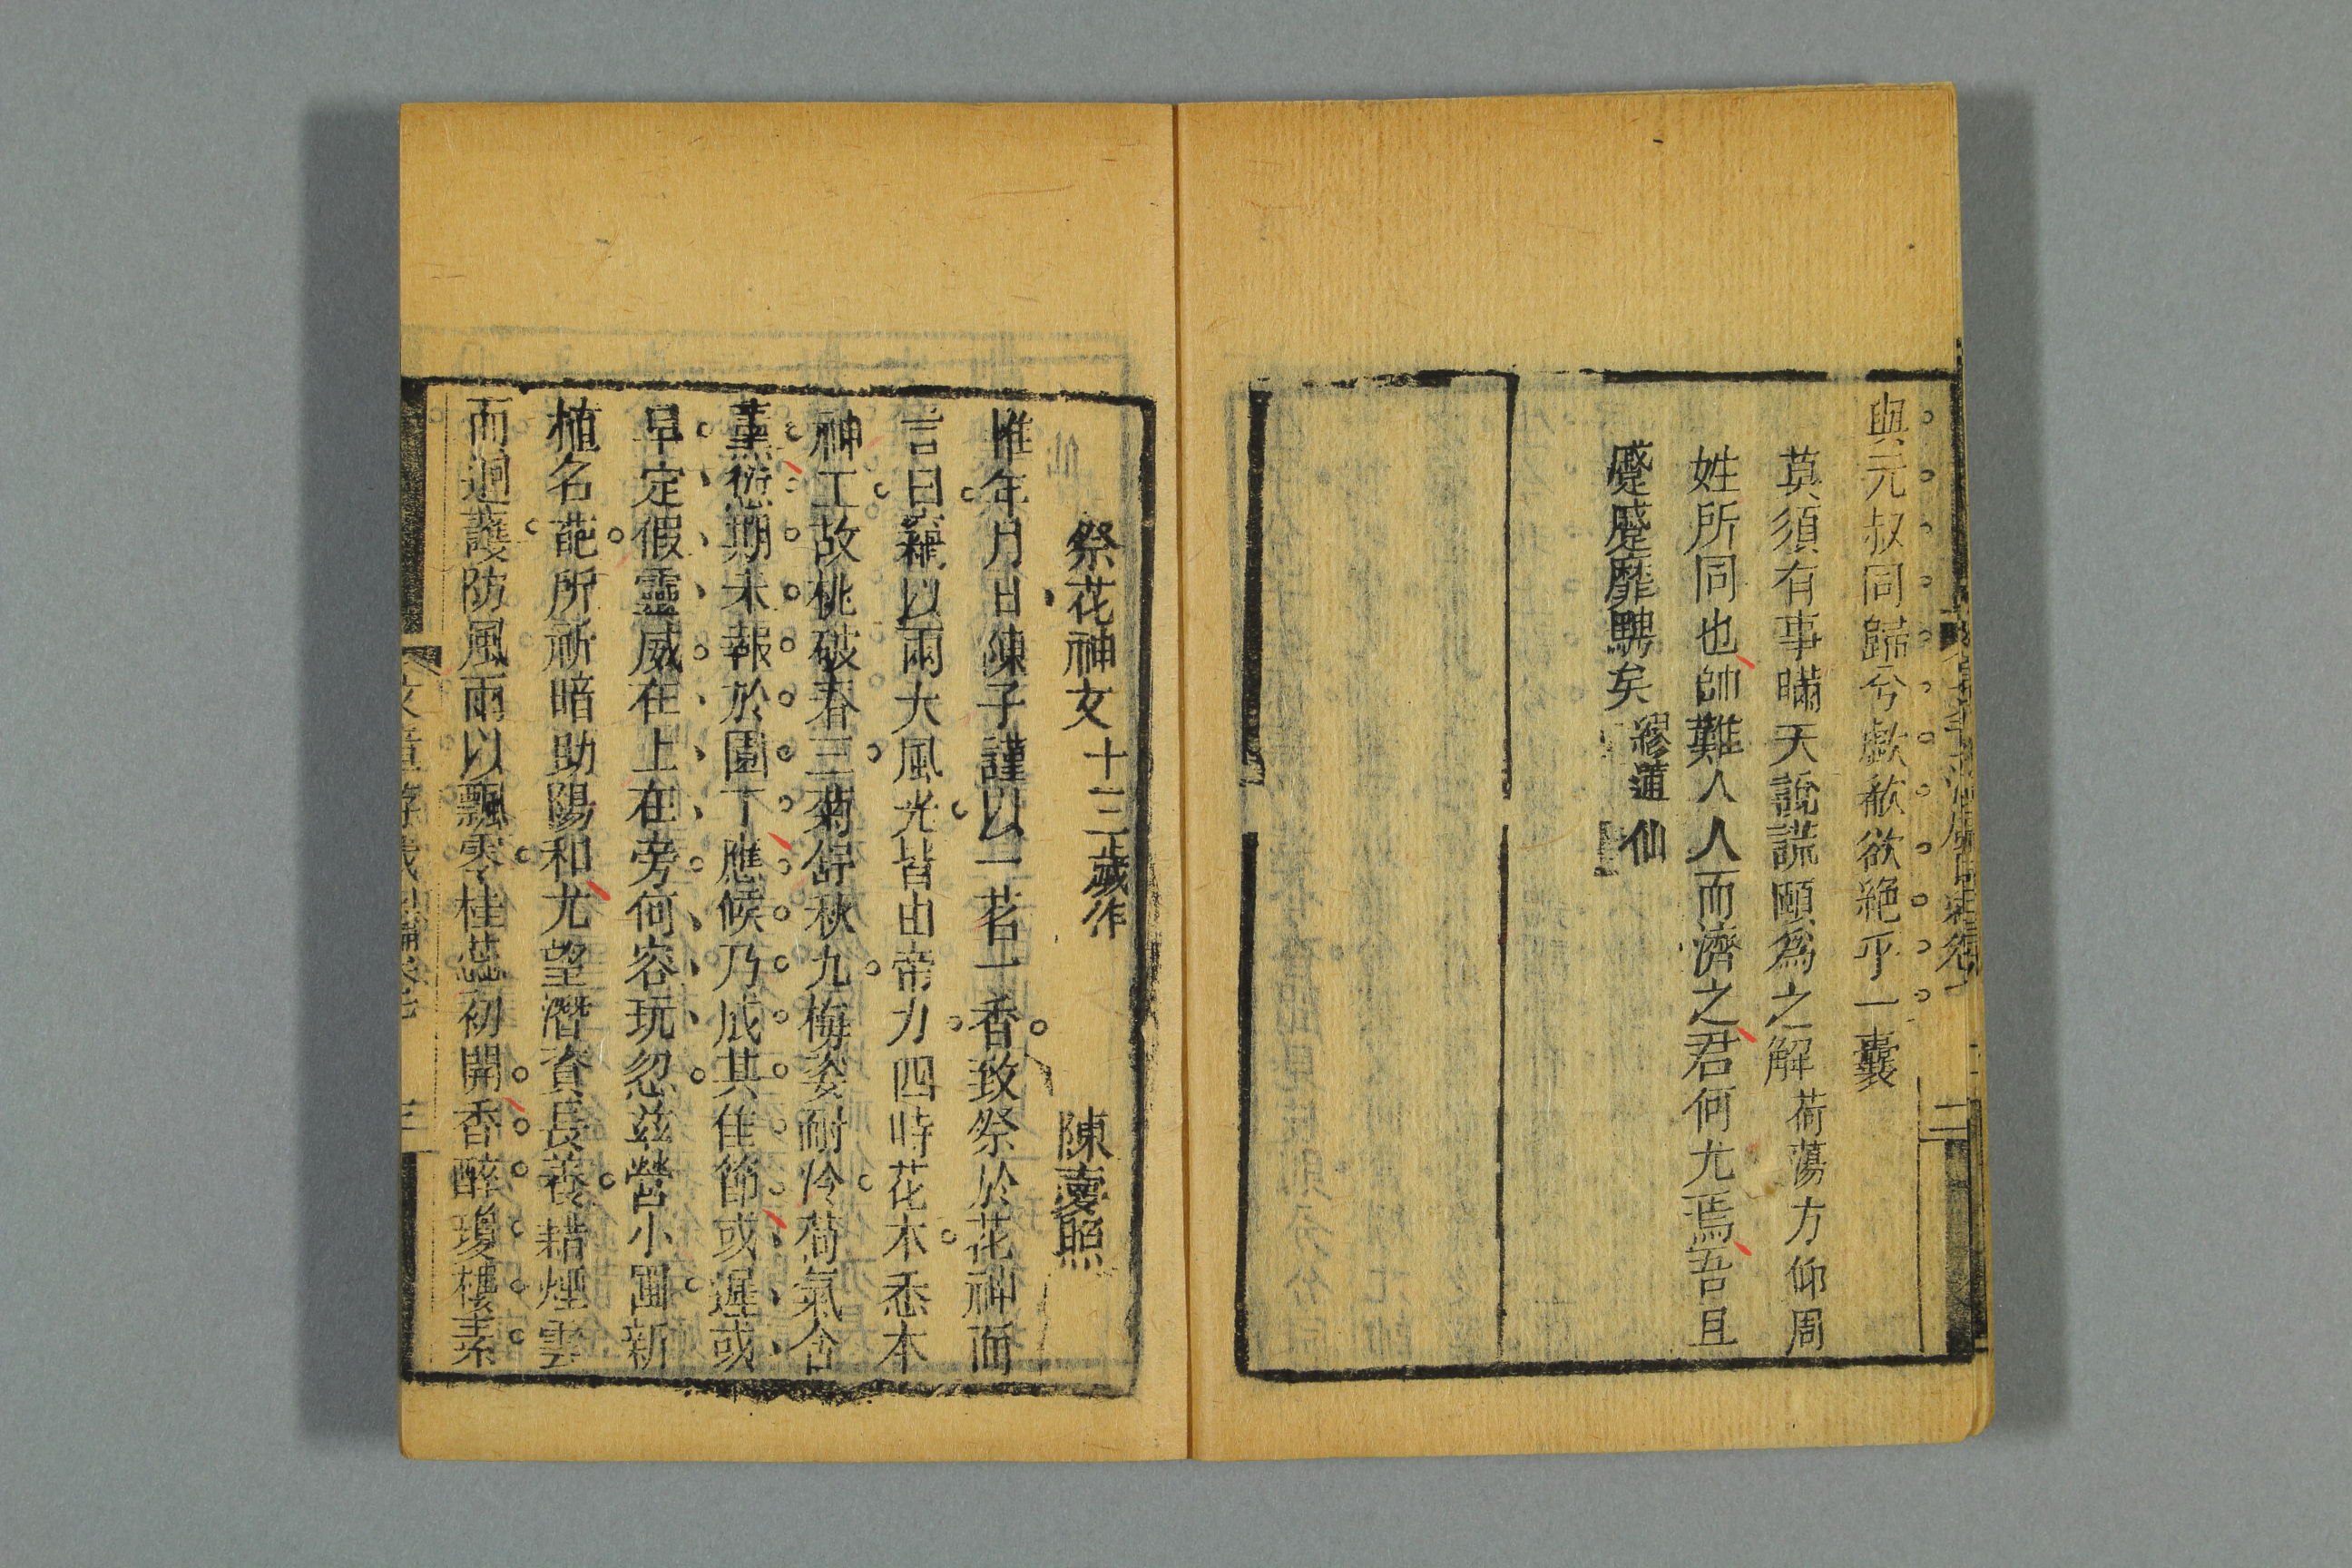 與元叔同歸兮歔欷欲絕乎一囊
莫須有事瞞天說謊願為之解荷蕩方仰周
姓所同也帥難人人而濟之君何尤焉吾且
蹙蹙靡騁矣
繆蓮仙
二
祭花神文十三歲作 陳裴照
惟年月日陳子謹以一茗一香致祭於花神而
言曰竊以兩大風光皆由帝力四時花木悉本
神工故桃破春三菊舒秋九梅姿耐冷荷氣含
薰愆期未報於園丁應候乃成其佳節或遲或
早定假靈威在上在旁何容玩忽茲營小圃新
植名葩所祈暗助陽和尤望潛資長養藉煙雲
而迴護防風雨以飄零桂蕊初開香醉瓊樓素
文章游戲
三